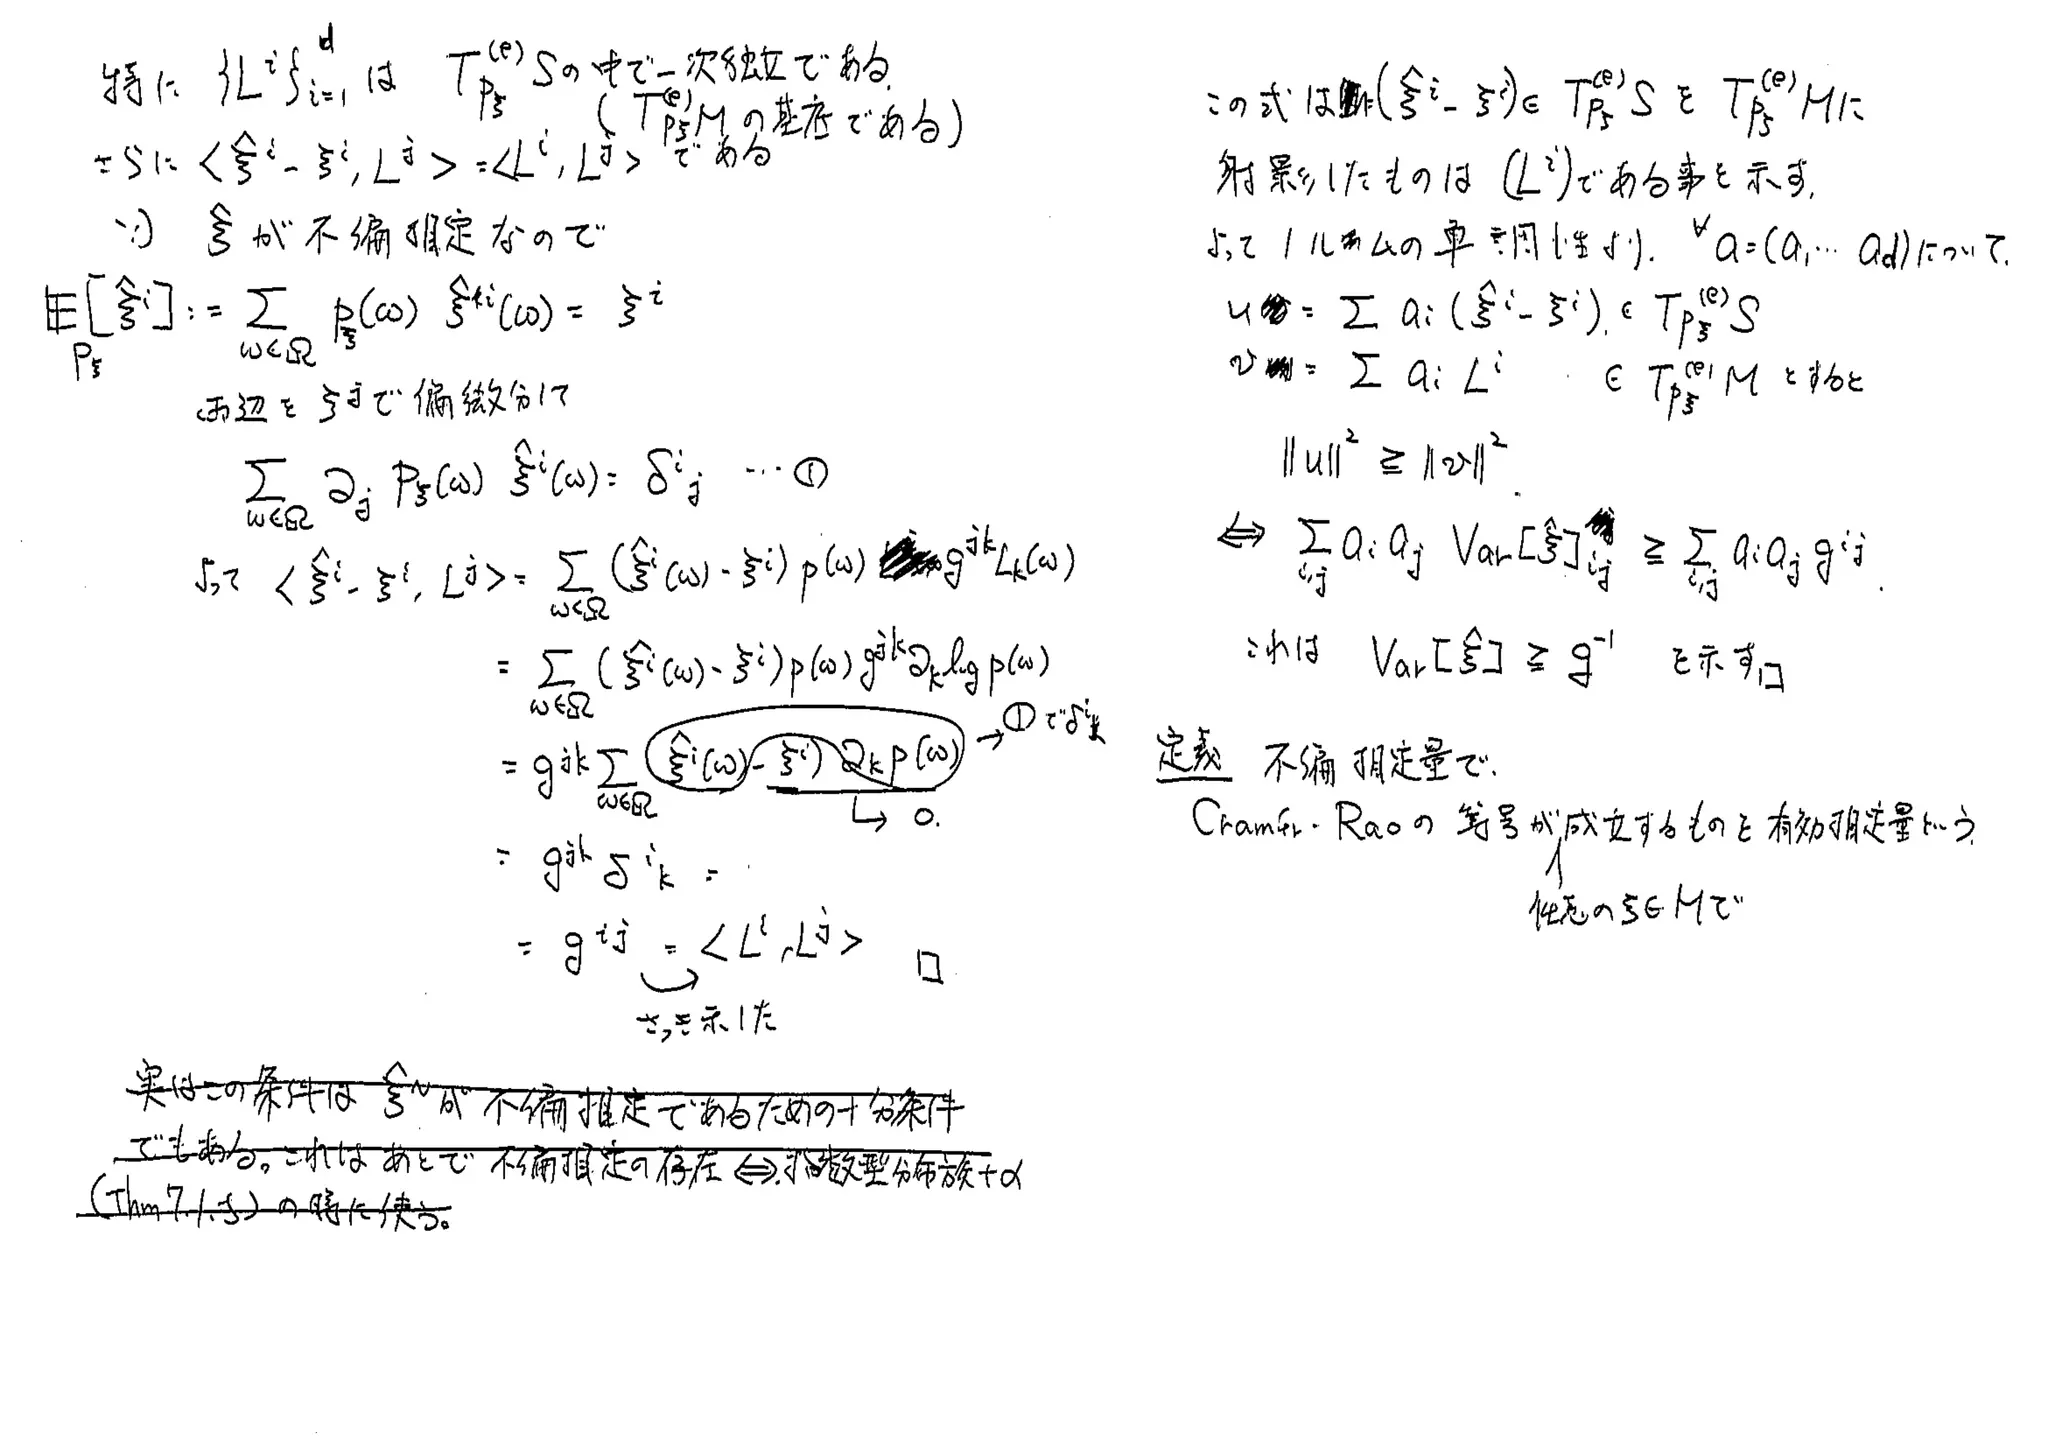 特に {L^i}_{i=1}^d は T_{p_ξ}^{(e)}S の中で一次独立である.
(T_{p_ξ}^{(e)}M の基底である)
さらに <ξ̂^i - ξ^i, L^j> = <L^i, L^j> である
∵) ξ̂ が不偏推定なので
E_{p_ξ}[ξ̂^i] := Σ_{ω∈Ω} p_ξ(ω) ξ̂^i(ω) = ξ^i
両辺を ξ^j で偏微分して
Σ_{ω∈Ω} ∂_j p_ξ(ω) ξ̂^i(ω) = δ^i_j … ①
よって <ξ̂^i - ξ^i, L^j> = Σ_{ω∈Ω} (ξ̂^i(ω) - ξ^i) p(ω) g^{jk} L_k(ω)
= Σ_{ω∈Ω} (ξ̂^i(ω) - ξ^i) p(ω) g^{jk} ∂_k log p(ω)
= g^{jk} Σ_{ω∈Ω} (ξ̂^i(ω) - ξ^i) ∂_k p(ω) → ① で δ^i_k
↳ 0.
= g^{jk} δ^i_k =
= g^{ij} = <L^i, L^j> □
さっき示した
実はこの条件は ξ̂ が不偏推定であるための十分条件
でもある。これはあとで不偏推定の存在 ⇔ 指数型分布族+α
(Thm 7.1.5) の時に使う。
この式は (ξ̂^i - ξ^i) ∈ T_{p_ξ}^{(e)}S を T_{p_ξ}^{(e)}M に
射影したものは (L^i) である事を示す.
よってノルムの単調性より. ∀a = (a_1 … a_d) について.
u = Σ a_i (ξ̂^i - ξ^i). ∈ T_{p_ξ}^{(e)}S
v = Σ a_i L^i ∈ T_{p_ξ}^{(e)}M とすると
||u||^2 ≧ ||v||^2.
⇔ Σ_{i,j} a_i a_j Var[ξ̂]_{ij} ≧ Σ_{i,j} a_i a_j g^{ij}.
これは Var[ξ̂] ≧ g^{-1} を示す. □
定義 不偏推定量で.
Cramér-Rao の等号が成立するものを有効推定量という.
任意の ξ∈M で